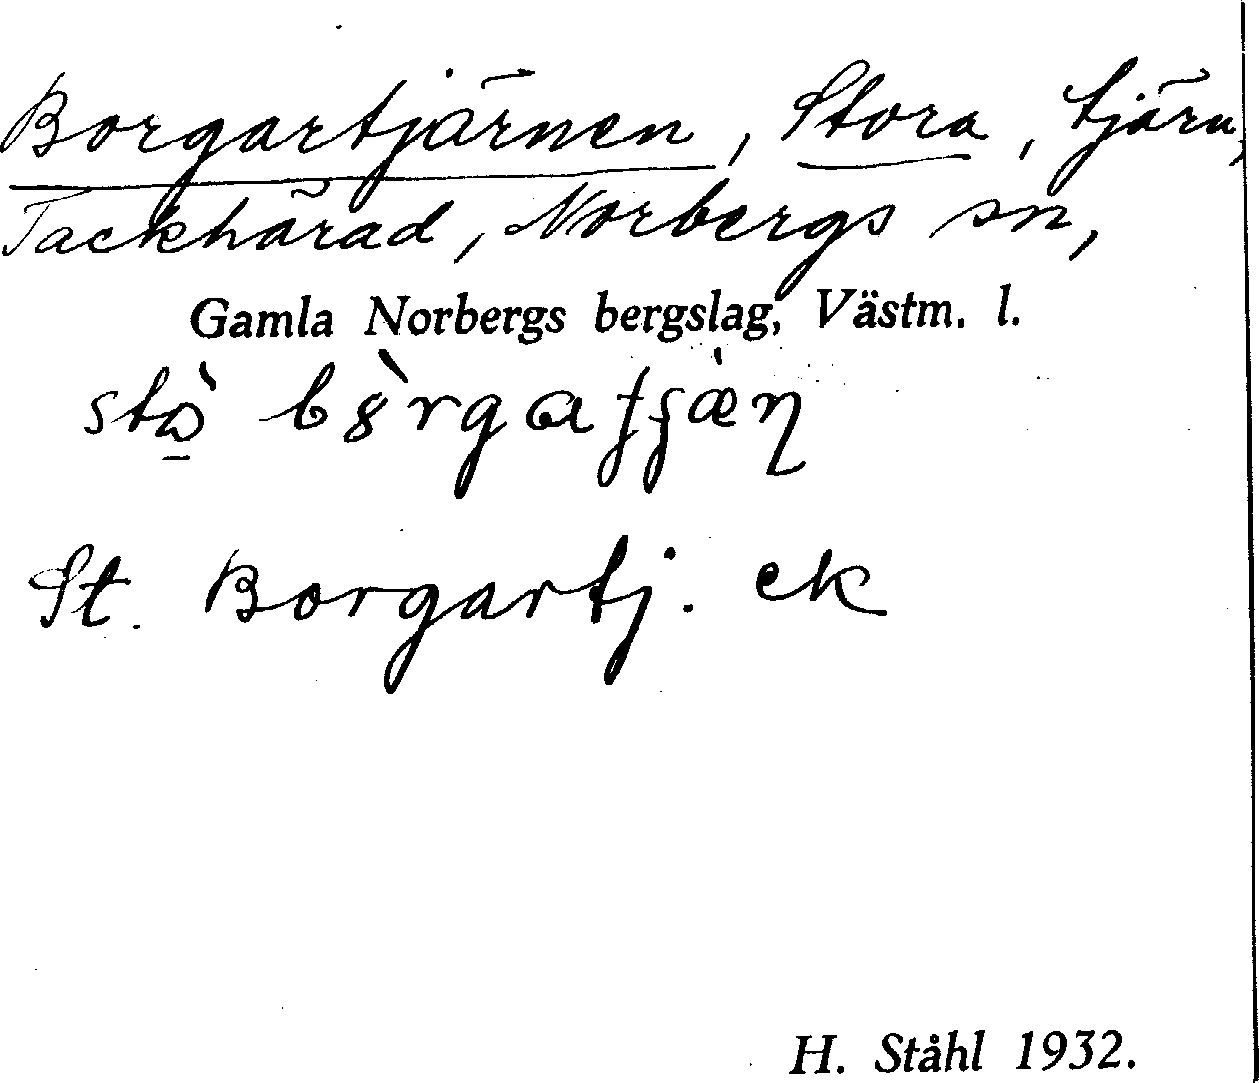 Borgartjärnen, Stora, tjärn,
Tackhärad, Norbergs sn,
Gamla Norbergs bergslag, Västm. l.
St. Borgartj. ek
H. Ståhl 1932.